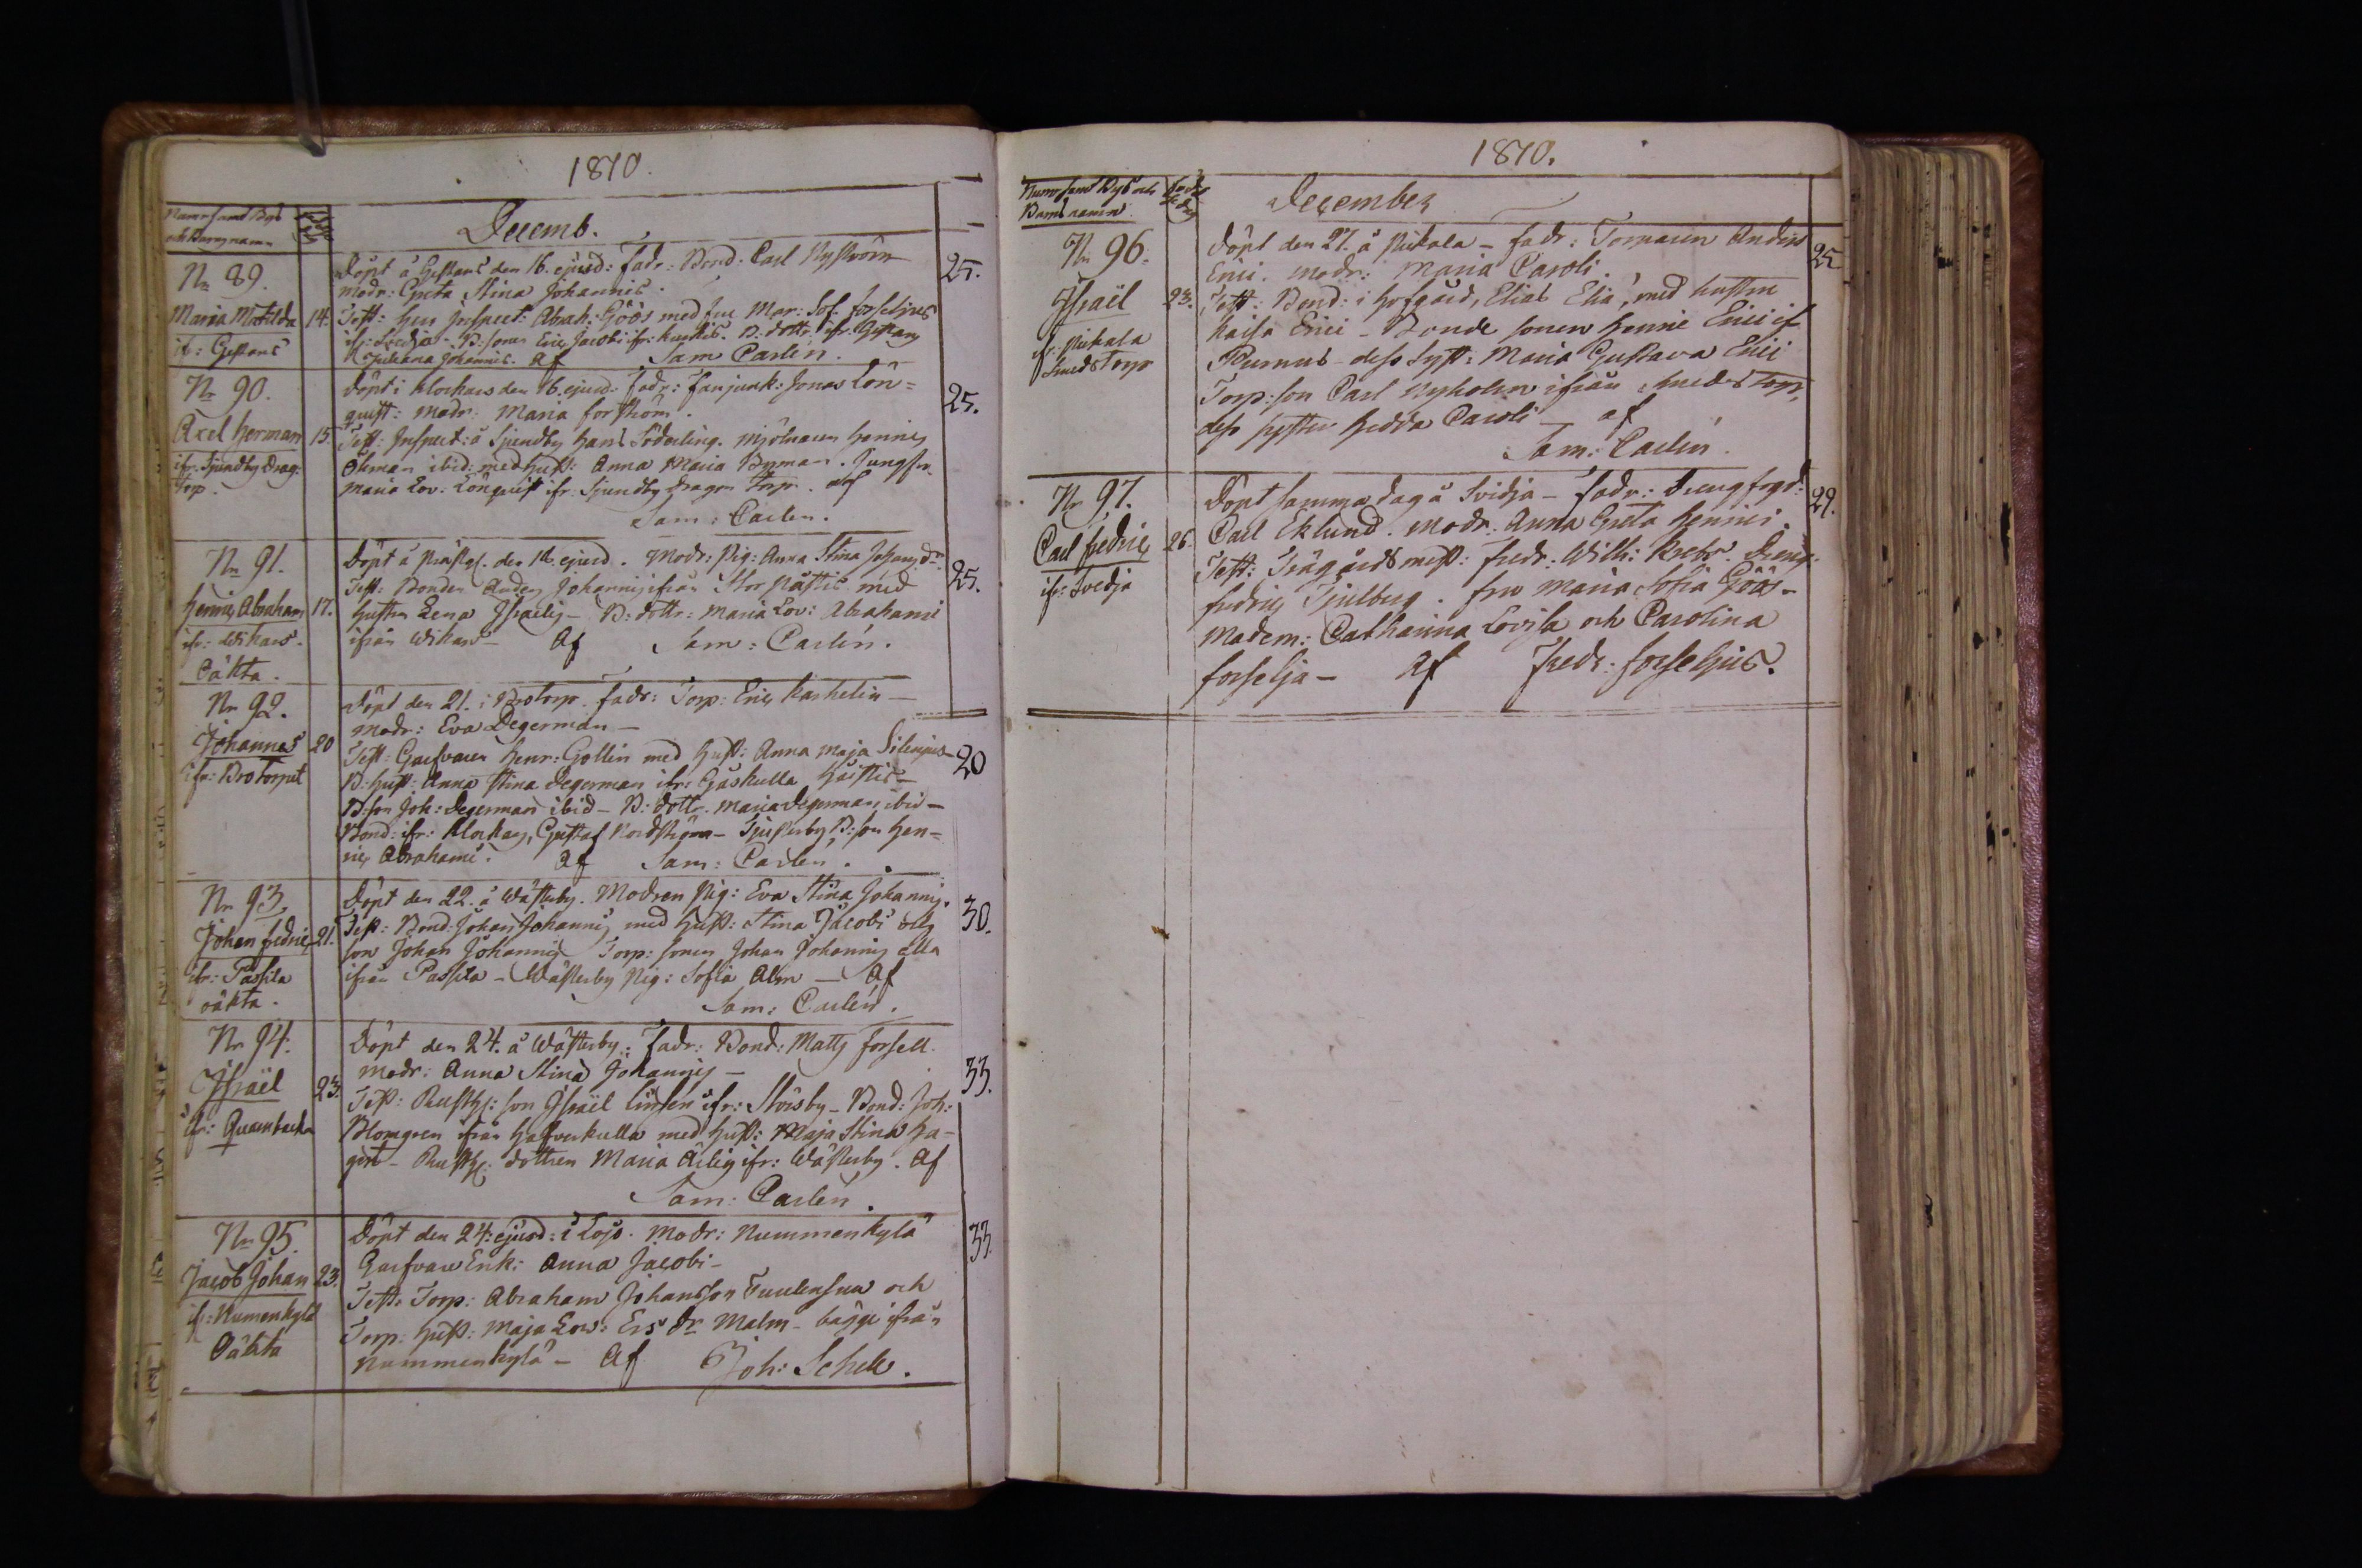 1810.
Namn samt Bys
och Barns namn
Decemb.
Nr 89.
Maria Matilda 14.
ifr: Gestans
Döpt å Gestans den 16. ejusd: fadr: Bond. Carl Nyström
modr: Greta Stina Johannis.
Test: Herr Inspect: Abrah: Göös med fru Mar: Sof: Forseljus
ifr: Svidja - B: sonen Eric Jacobi ifr: Kuskis. B: dottr ifr: Gestans
Juliana Johannis. Af Sam Carlen.
25.
Nr 90.
Axel Herman 15
ifr. Sjundby Drag:
torp.
Döpt i Klockars den 16. ejusd. fadr: Fanjunk: Jonas Lön=
quist: modr: Maria Forström.
Test: Inspect: å Sjundby Hans Söderling. Mjölnaren Henric
Öhman ibid: med Hust: Anna Maria Byman. Jungfr.
Maria Lov: Lönquist ifr: Sjundby Dragon Torp. af
Sam: Carlen.
25.
Nr 91.
Henric Abraham 17.
ifr: Wikars.
Oäkta.
Döpt å Prästg. den 18. ejusd. Modr: Pig: Anna Stina Johansdr.
Test: Bonden Anders Johannis ifrån Stor Pästis med
hustru Lena Israelis - B: dottr: Maria Lov: Abrahami
ifrån Wikars - Af Sam: Carlen.
25.
Nr 92.
Johannes 20
ifr: Brotorpet
Döpt den 21. i Brotorp fadr: Torp: Eric Karhelin -
modr: Eva Degerman -
Test: Garfvaren Henr: Gollin med Hust: Anna Maja Silenius -
B: hust: Anna Stina Degerman ifr: Gåskulla Hästis -
B: son Joh: Degerman ibid - B: dottr. Maria Degerman ibid -
Bond: ifr: Klockars, Gustaf Nordström - Tjusterby B: son Hen=
ric Abrahami. Af Sam: Carlen.
20
Nr 93.
Johan Fedric 21.
ifr: Passila
oäkta.
Döpt den 22. å Wästerby. Modren Pig: Eva Stina Johannis.
Test: Bond: Johan Johannis med Hust: Stina Jacobi och
son Johan Johannis Torp: sonen Johan Johannis Ella
ifrån Passila - Wästerby Pig: Sofia Alm - Af
Sam: Carlen.
30.
Nr 94.
Israël 23.
ifr: Quarnbacka
Döpt den 24. å Wästerby: Fadr: Bond: Matts Forsell.
modr: Anna Stina Johannis -
Test: Rusth: son Israël Lindén ifr: Störsby - Bond: Joh:
Blomgren ifrån Haffverkulla med Hust: Maja Stina Ha-
gert - Rusth: dottren Maria Carlis ifr: Wästerby. Af
Sam: Carlen.
33.
Nr 95.
Jacob Johan 23.
ifr: Numenkylä
Oäkta
Döpt den 24: ejusd: i Lojo. Modr: Nummenkylä
Garfvare Enk: Anna Jacobi -
Test: Torp: Abraham Johansson Tuulensuu och
Torp: Hust: Maja Lov: Ers dr Malm - bägge ifrån
Nummenkylä - Af Joh: Schele.
33.
1810.
Namn samt Bys och
Barns namn
December
Nr 96.
Israël 23.
ifr: Pickala
Smedstorp
Döpt den 27. å Pickala - fadr: Torparen Anders
Erici. modr: Maria Caroli.
Test: Bond: i Hofgård, Elias Eliæ, med hustru
Kaisa Erici - Bonde sonen Henric Erici if
Purnus - dess Syst: Maria Gustava Erici
Torp: son Carl Nyholm ifrån Smedstorp,
dess syster Hedda Caroli - af
Sam: Carlen.
25
Nr 97.
Carl Fedric 26.
ifr: Svidja
Döpt samma dag å Svidja - fadr: Drengfogd:
Carl Eklund. Modr: Anna Greta Henrici.
Test: Trägårds mest: Fredr: Wilh: Dreng:
Fredric Tjulberg. fru Maria Sofia Göös -
Madem: Catharina Lovisa och Carolina
Forselja - Af Fredr: Forseljus.
29.